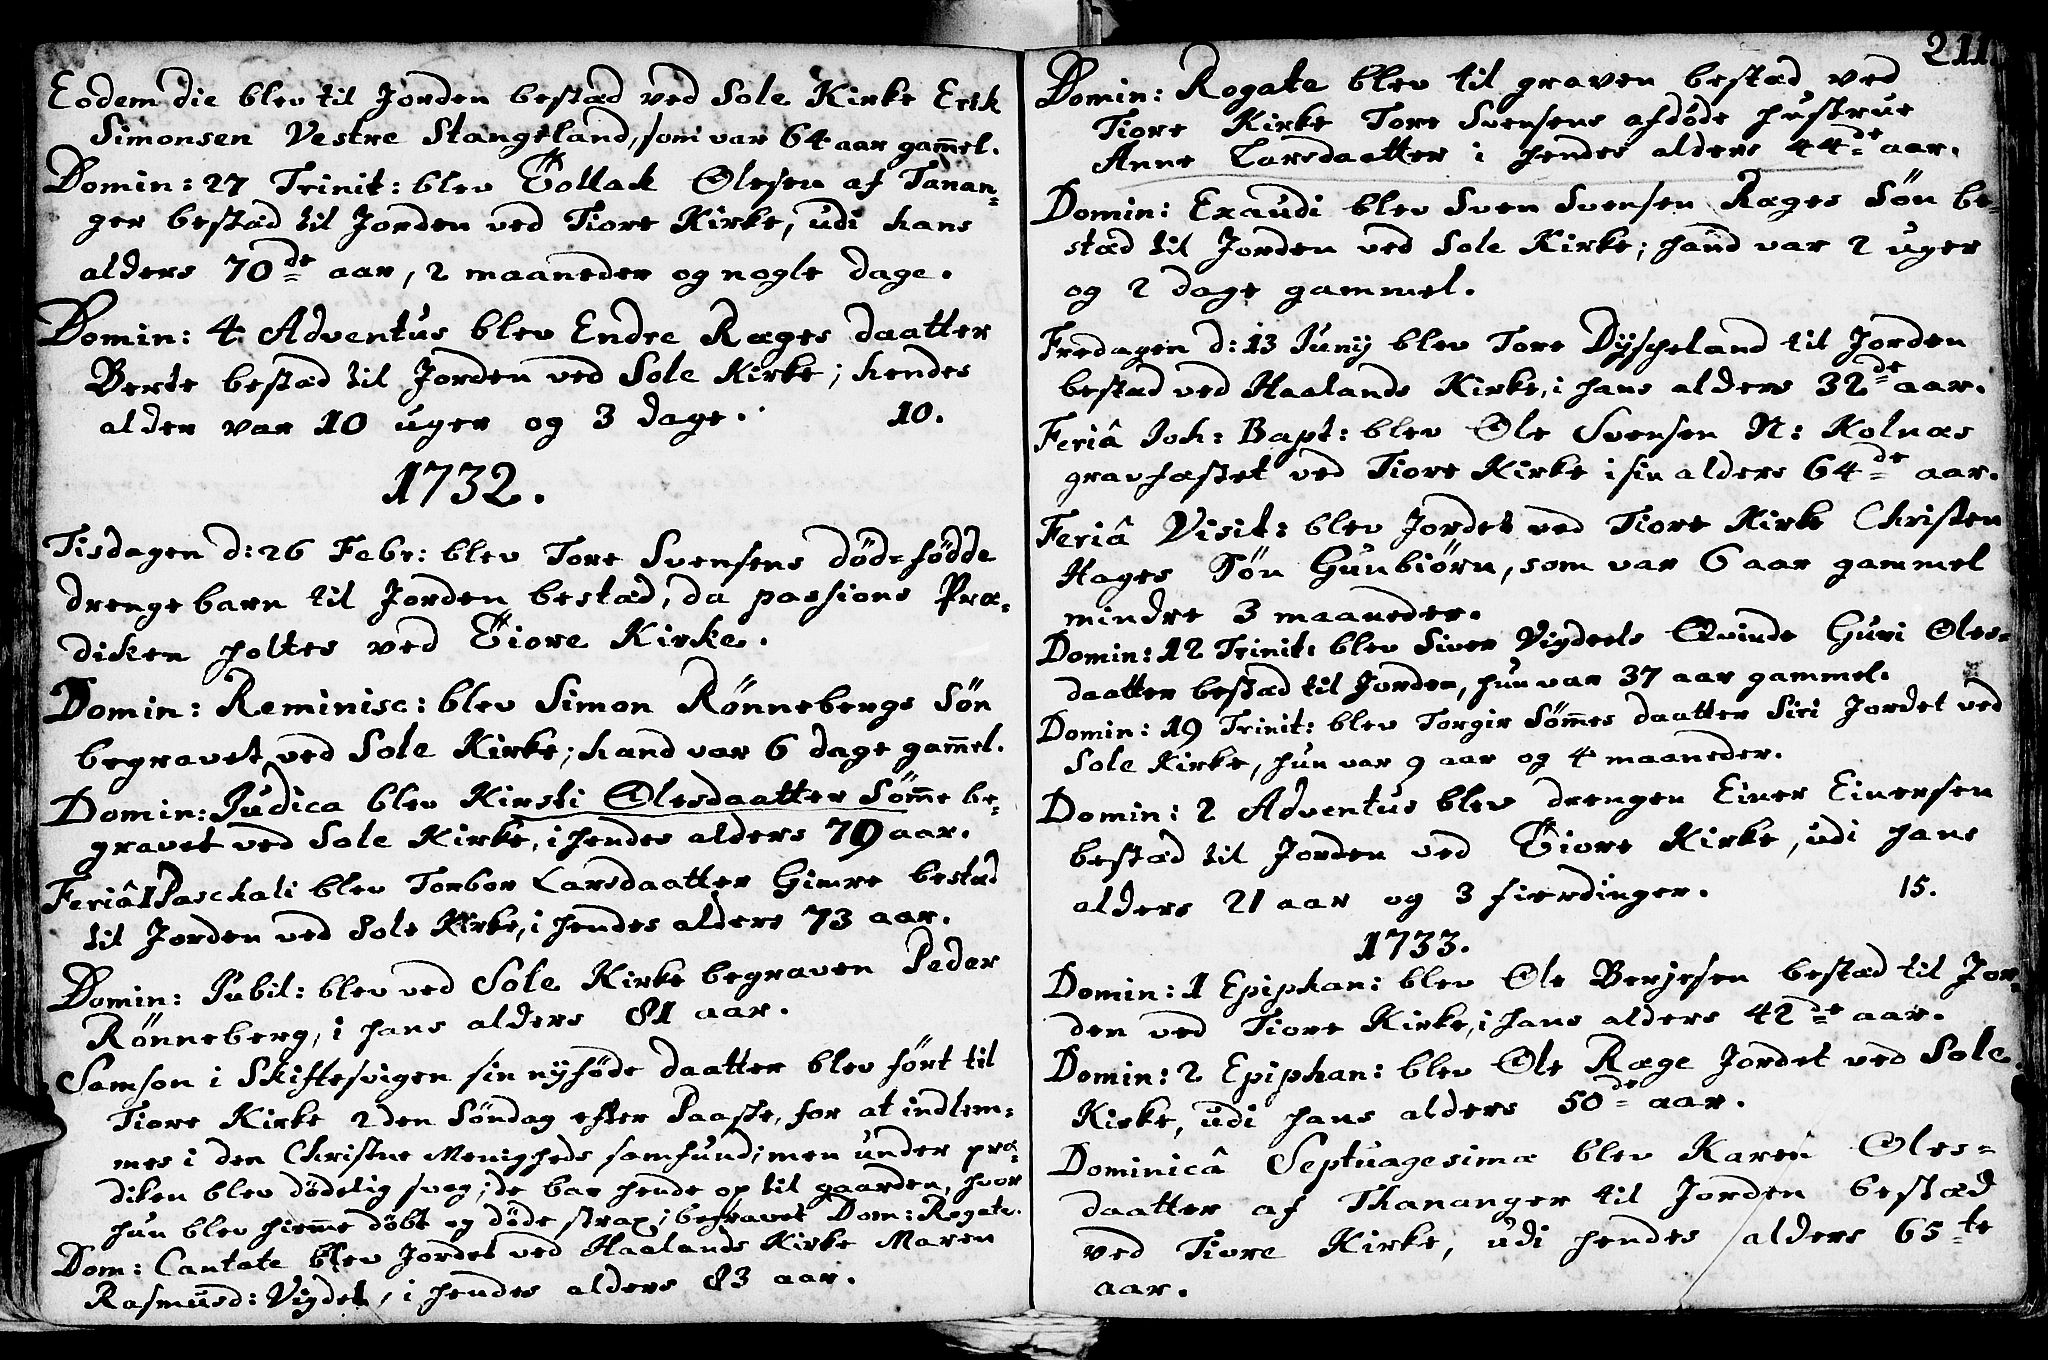 Eodem die blev til Jorden bestæd ved Sole Kirke Erik
Simonsen Vestre Stangeland, som var 64 aar gam̄el.
Domin: 27 Trinit: blev Tollak Olesen af Tanan-
ger bestæd til Jorden ved Tiore Kirke, udi hans
alders 70de aar, 2 maaneder og nogle dage.
Domin: 4 Adventus blev Endre Ræges daatter
Berte bestæd til Jorden ved Sole Kirke; hendes
alder var 10 uger og 3 dage. 10.
1732.
Tisdagen d: 26 Febr: blev Tore Svensens dödefödde
drengebarn til Jorden bestæd, da passions Præ-
diken holtes ved Tiore Kirke.
Domin: Reminisc: blev Simon Rönnebergs Sön
begravet ved Sole Kirke; hand var 6 dage gam̄el.
Domin: Judica blev Kirsti Olesdaatter Söm̄e be-
gravet ved Sole Kirke, i hendes alders 79 aar.
Feriâ 1 Paschali blev Torbor Larsdaatter Gimre bestæd
til Jorden ved Sole Kirke, i hendes alders 73 aar.
Domin: Jubil: blev ved Sole Kirke begraven Peder
Rönneberg, i hans alders 81 aar.
Samson i Skiftesvigen sin nyföde daatter blev fört til
Tiore Kirke 2den Söndag efter Paaske, for at indlem-
mes i den Christne Menigheds samfund; men under præ-
diken blev dödelig svag; de bar hende op til gaarden, hvor
hun blev hiem̄e döbt og döde strax; begravet Dom: Rogate.
Dom: Cantate blev Jordet ved Haalands Kirke Maren
Rasmusd: Vigdel, i hendes alders 83 aar.
211.
Domin: Rogate blev til graven bestæd ved
Tiore Kirke Tore Svensens afdöde hustrue
Anne Larsdaatter i hendes alders 44de aar.
Domin: Exaudi blev Sven Svensen Ræges Sön be-
stæd til Jorden ved Sole Kirke; hand var 2 uger
og 2 dage gammel.
Fredagen d: 13 Junij blev Tore Dysheland til Jorden
bestæd ved Haalands Kirke, i hans alders 32de aar.
Feriâ Joh: Bapt: blev Ole Svensen N: Kolnæs
gravfæstet ved Tiore Kirke i sin alders 64de aar.
Feriâ Visit: blev Jordet ved Tiore Kirke Christen
Hages Sön Gunbiörn, som var 6 aar gammel
mindre 3 maaneder.
Domin: 12 Trinit: blev Siver Vigdels Qvinde Guri Oles-
daatter bestæd til Jorden, hun var 37 aar gammel.
Domin: 19 Trinit: blev Torgir Söm̄es daatter Siri Jordet ved
Sole Kirke, hun var 9 aar og 4 maaneder.
Domin: 2 Adventus blev drengen Einer Einersen
bestæd til Jorden ved Tiore Kirke, udi hans
alders 21 aar og 3 fierdinger. 15.
1733.
Domin: 1 Epiphan: blev Ole Berjesen bestæd til Jor-
den ved Tiore Kirke, i hans alders 42de aar.
Domin: 2 Epiphan: blev Ole Ræge Jordet ved Sole
Kirke, udi hans alders 50de aar.
Dominicâ Septuagesimæ blev Karen Oles-
daatter af Thananger til Jorden bestæd
ved Tiore Kirke, udi hendes alders 65te
aar.